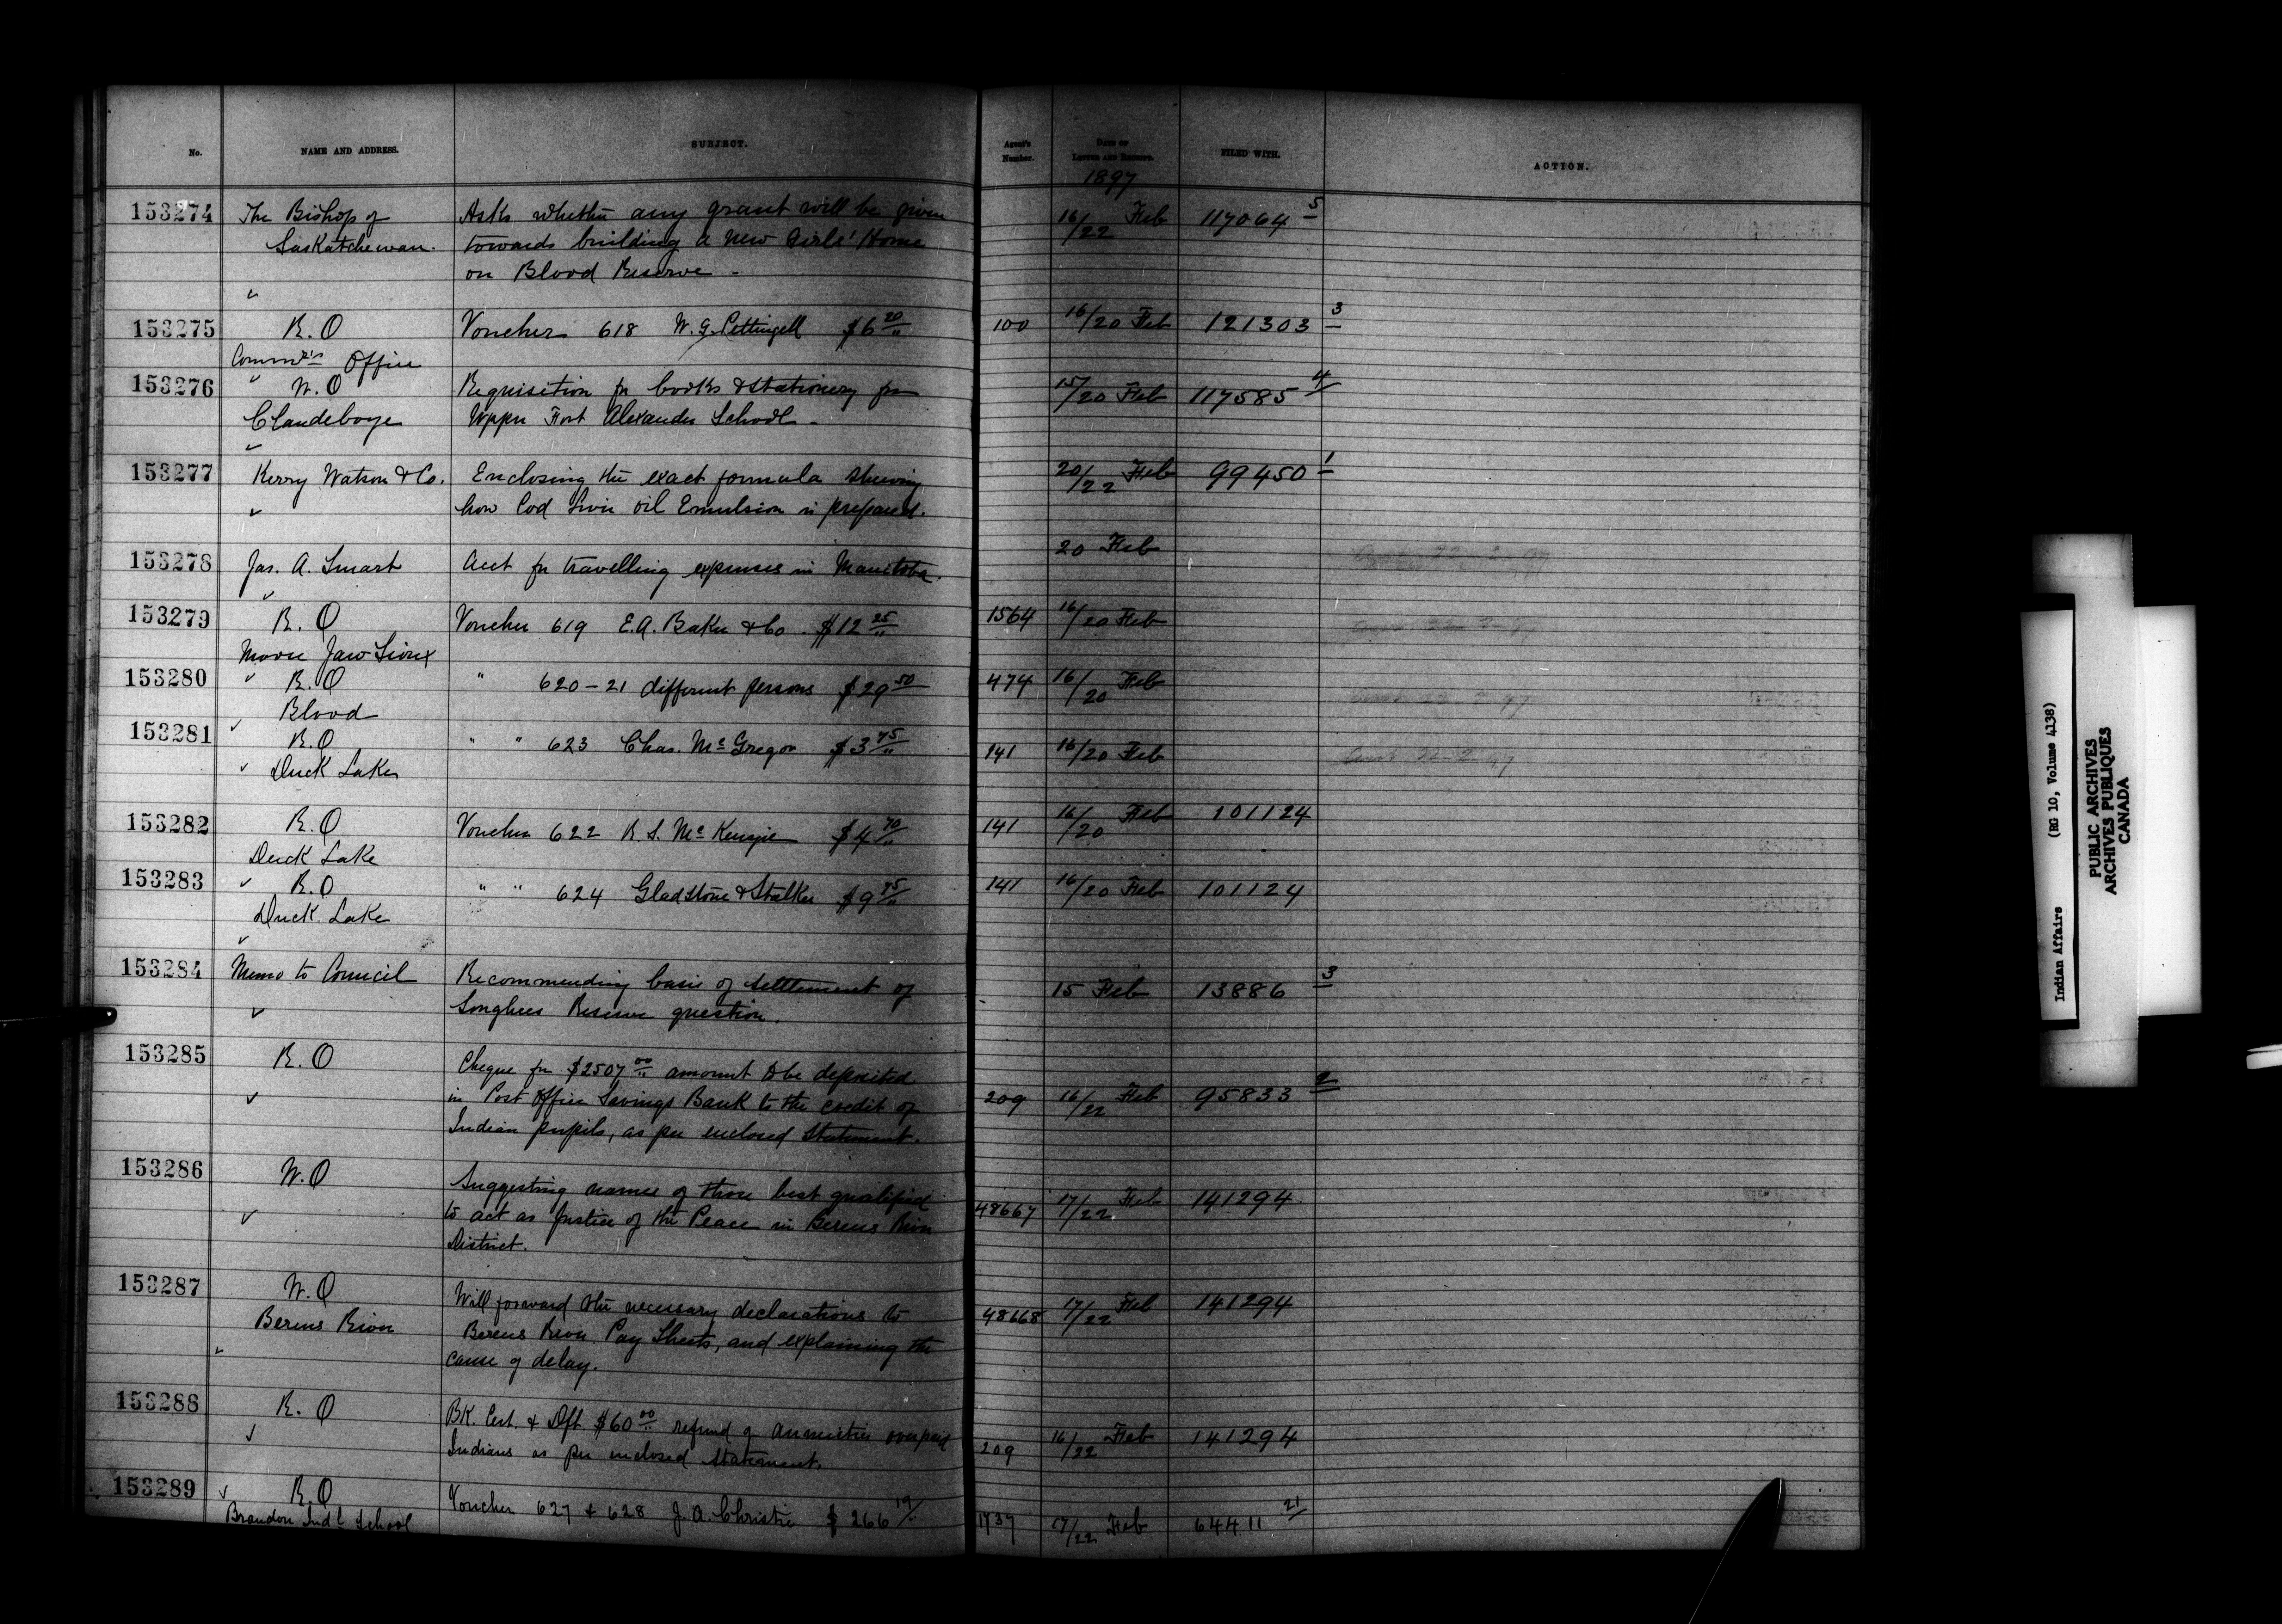 No. NAME AND ADDRESS. SUBJECT. Agent's Number. DATE OF LETTER AND RECEIPT. FILED WITH. ACTION.
1897
153274 The Bishop of Asks whether any grant will be given 16/22 Feb 117064 5
Saskatchewan. towards building a new Girls' Home
on Blood Reserve -
153275 R.O Voucher 618 W.G. Pettingell $6 20/" 100 16/20 Feb 121303 3
Comm'r's Office
153276 " W.O Requisition for books & stationery for 15/20 Feb 117585 4
Clandeboye Upper Fort Alexander School -
153277 Kerry Watson & Co. Enclosing the exact formula shewing 20/22 Feb 99450 1
how Cod Liver Oil Emulsion is prepared.
153278 Jas. A. Smart Acct for travelling expenses in Manitoba. 20 Feb
153279 R.O Voucher 619 E.A. Baker & Co. $12 25/" 1564 16/20 Feb
Moose Jaw Sioux
153280 R.O " 620-21 different persons $29 50 474 16/20 Feb
Blood
153281 R.O " " 623 Chas. McGregor $3 75/" 141 16/20 Feb
Duck Lake
153282 R.O Voucher 622 R.S. McKenzie $4 70/" 141 16/20 Feb 101124
Duck Lake
153283 R.O " " 624 Gladstone & Stalker $9 75/" 141 16/20 Feb 101124
Duck Lake
153284 Memo to Council Recommending basis of settlement of 15 Feb 13886 3
Songhees Reserve question.
153285 R.O Cheque for $2507 00/" amount to be deposited
in Post Office Savings Bank to the credit of 209 16/22 Feb 95833 2
Indian pupils, as per enclosed statement.
153286 W.O Suggesting names of those best qualified
to act as Justice of the Peace in Berens River 48667 17/22 Feb 141294
District.
153287 W.O Will forward the necessary declarations to 48668 17/22 Feb 141294
Berens River Berens River Pay Sheets, and explaining the
cause of delay.
153288 R.O BK. Cert. & Dft. $60 00/" refund of annuities overpaid
Indians as per enclosed statement. 209 16/22 Feb 141294
153289 R.O Voucher 627 & 628 J.A. Christie $266 19/" 1737 17/22 Feb 64411 21
Brandon Ind'l School
Indian Affairs (RG 10, Volume 4138)
PUBLIC ARCHIVES
ARCHIVES PUBLIQUES
CANADA